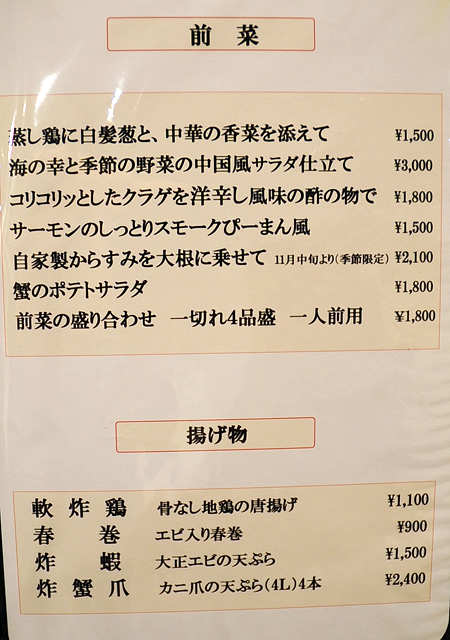 前菜
蒸し鶏に白髪葱と、中華の香菜を添えて ¥1,500
海の幸と季節の野菜の中国風サラダ仕立て ¥3,000
コリコリッとしたクラゲを洋辛し風味の酢の物で ¥1,800
サーモンのしっとりスモークぴーまん風 ¥1,500
自家製からすみを大根に乗せて 11月中旬より(季節限定) ¥2,100
蟹のポテトサラダ ¥1,800
前菜の盛り合わせ 一切れ4品盛 一人前用 ¥1,800
揚げ物
軟炸鶏 骨なし地鶏の唐揚げ ¥1,100
春巻 エビ入り春巻 ¥900
炸蝦 大正エビの天ぷら ¥1,500
炸蟹爪 カニ爪の天ぷら(4L)4本 ¥2,400